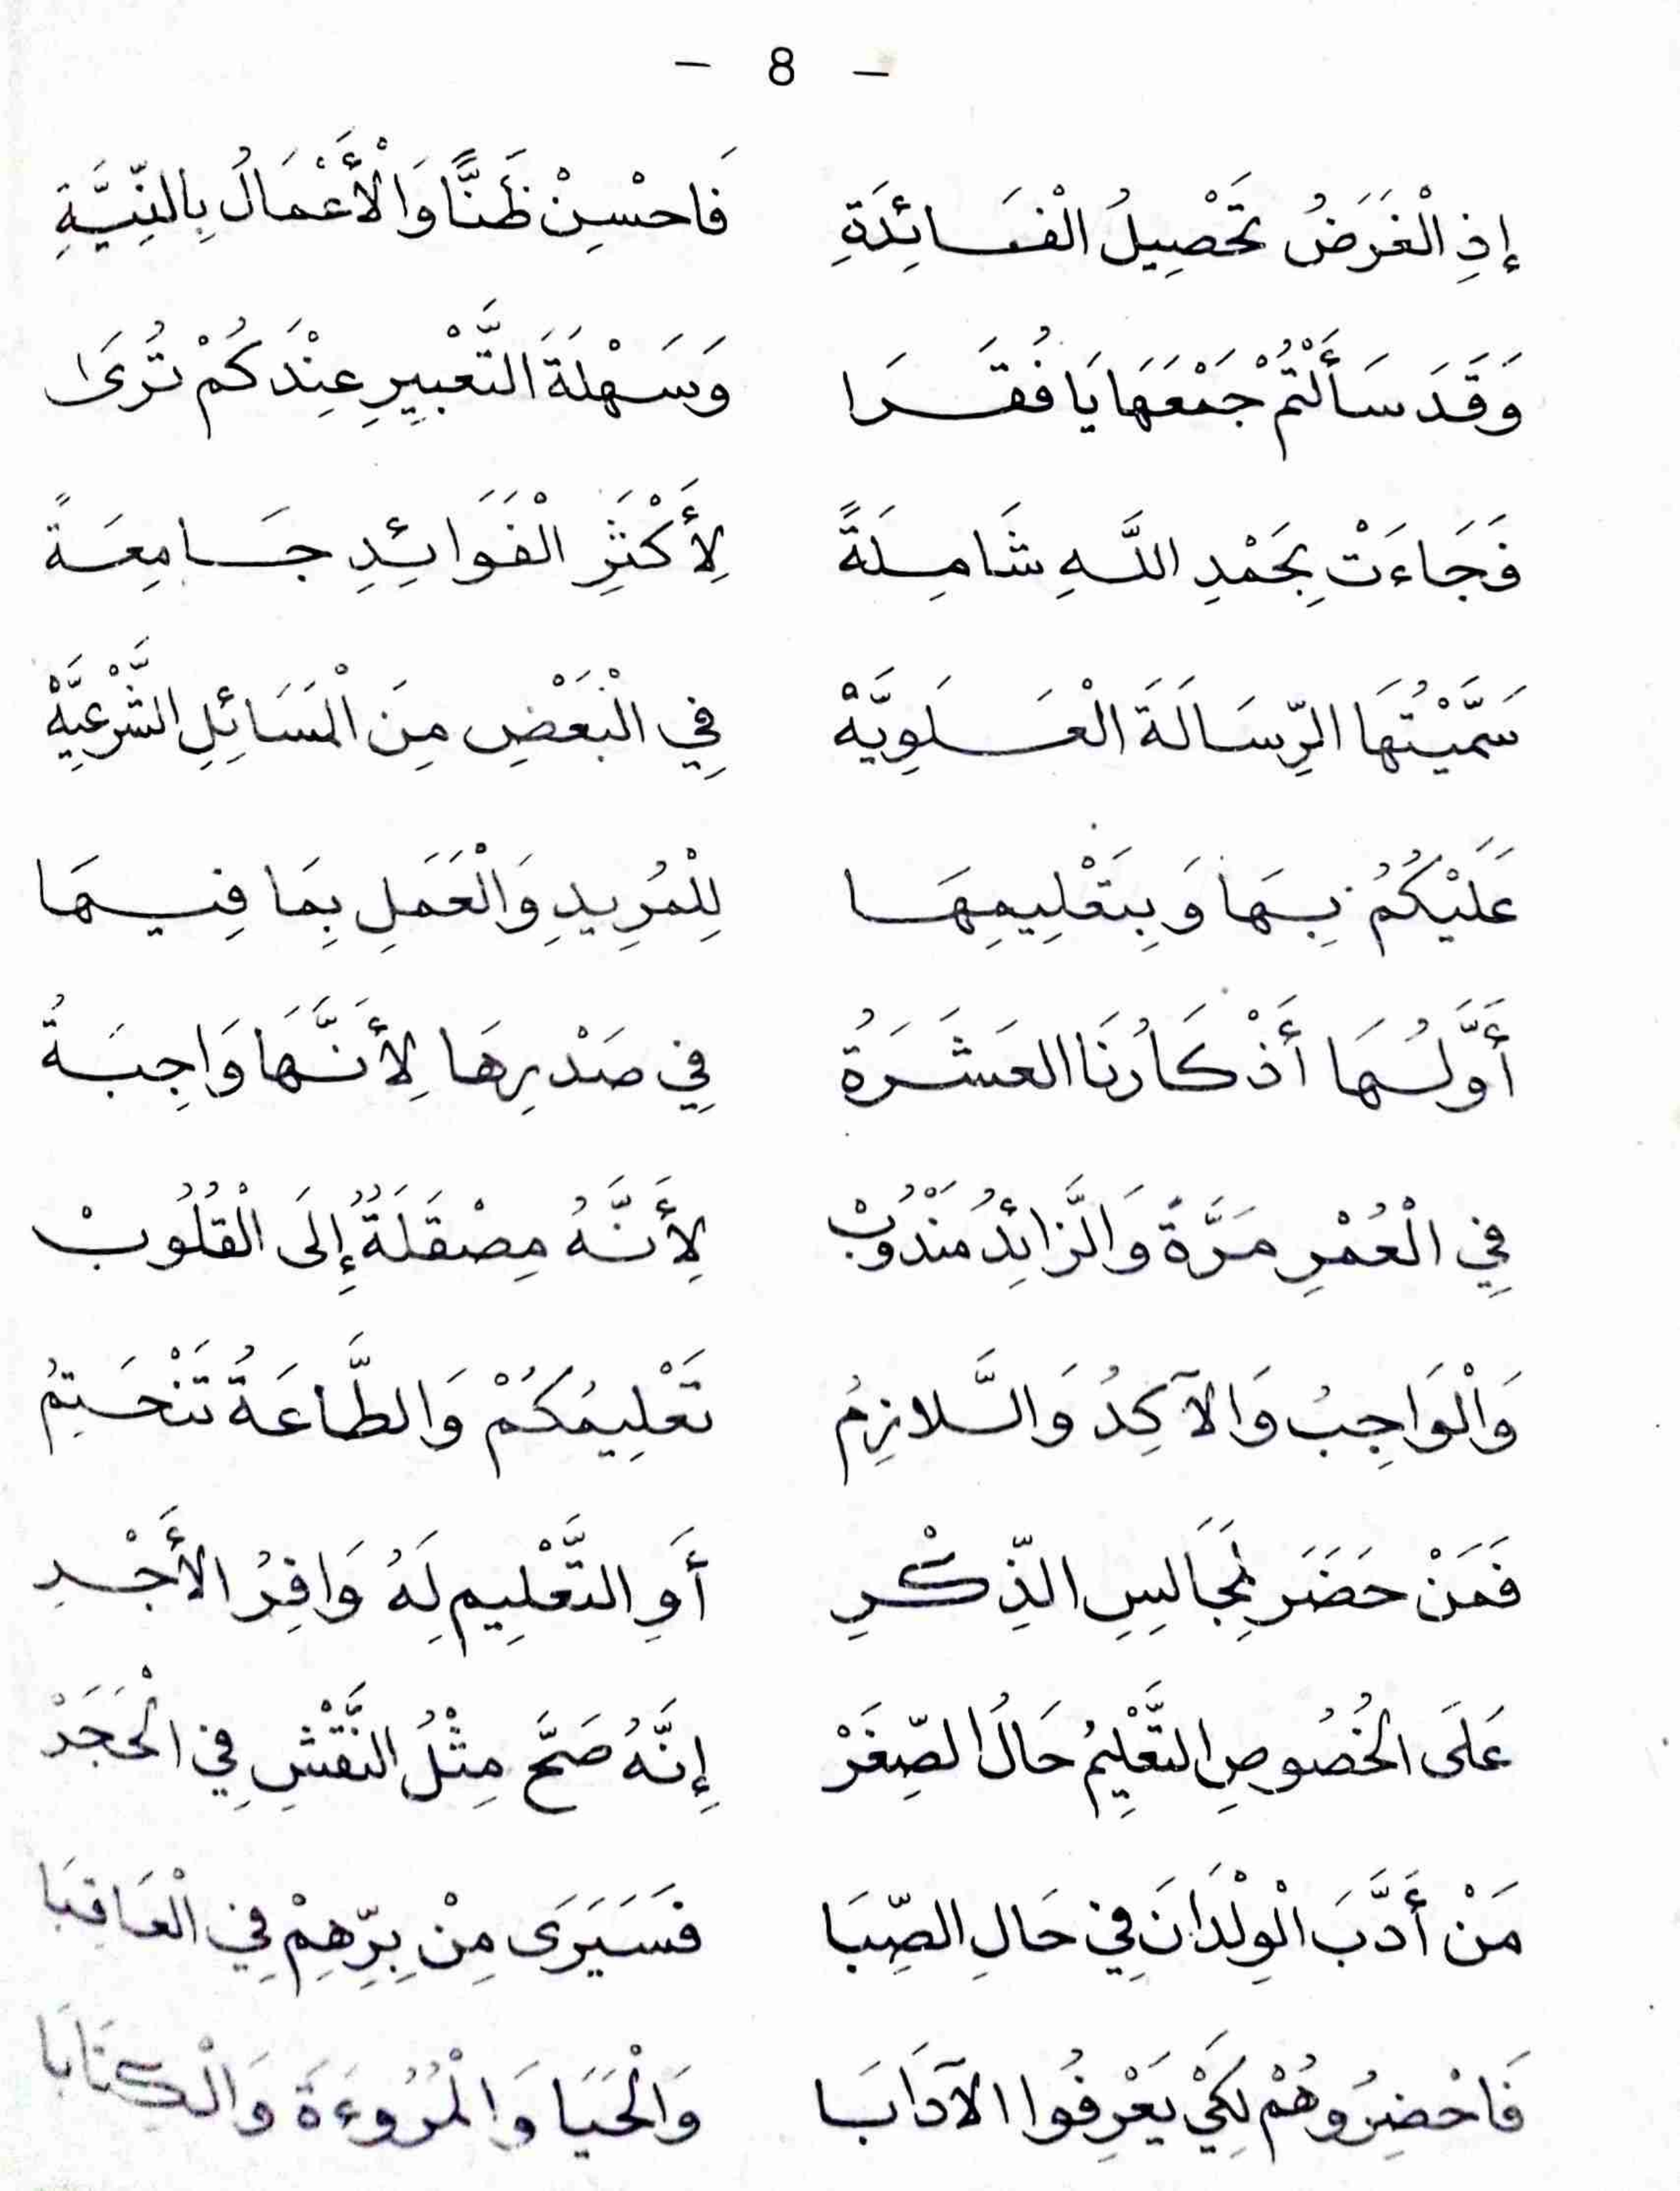 - 8 -
إِذِ الْغَرَضُ تَحْصِيلُ الْفَائِدَةِ فَاحْسِنْ ظَنًّا وَالْأَعْمَالُ بِالنِّيَّةِ
وَقَدَ سَأَلْتُمْ جَمْعَهَا يَا فُقَرَا وَسَهْلَةَ التَّعْبِيرِ عِنْدَكُمْ تُرَى
فَجَاءَتْ بِحَمْدِ اللَّهِ شَامِلَةً لِأَكْثَرِ الْفَوَائِدِ جَامِعَةً
سَمَّيْتُهَا الرِّسَالَةَ الْعَلَوِيَّةْ فِي الْبَعْضِ مِنَ الْمَسَائِلِ الشَّرْعِيَّةْ
عَلَيْكُمُ بِهَا وَبِتَعْلِيمِهَا لِلْمُرِيدِ وَالْعَمَلِ بِمَا فِيهَا
أَوَّلُهَا أَذْكَارُنَا العَشَرَةُ فِي صَدْرِهَا لِأَنَّهَا وَاجِبَةُ
فِي الْعُمْرِ مَرَّةً وَالزَّائِدُ مَنْدُوبْ لِأَنَّهُ مِصْقَلَةٌ إِلَى الْقُلُوبْ
وَالْوَاجِبُ وَالآكِدُ وَالَّلازِمُ تَعْلِيمُكُمْ وَالطَّاعَةُ تَنْحَتِمُ
فَمَنْ حَضَرَ لِمَجَالِسِ الذِّكْرِ أَوِ التَّعْلِيمِ لَهُ وَافِرُ الأَجْرِ
عَلَى الْخُصُوصِ التَّعْلِيمُ حَالَ الصِّغَرْ إِنَّهُ صَحَّ مِثْلُ النَّقْشِ فِي الْحَجَرْ
مَنْ أَدَّبَ الْوِلْدَانَ فِي حَالِ الصِّبَا فَسَيَرَى مِنْ بِرِّهِمْ فِي الْعَاقِبَا
فَاحْضِرُوهُمْ لِكَيْ يَعْرِفُوا الآدَابَا وَالْحَيَا وَالْمُرُوءَةَ وَالْكِتَابَا